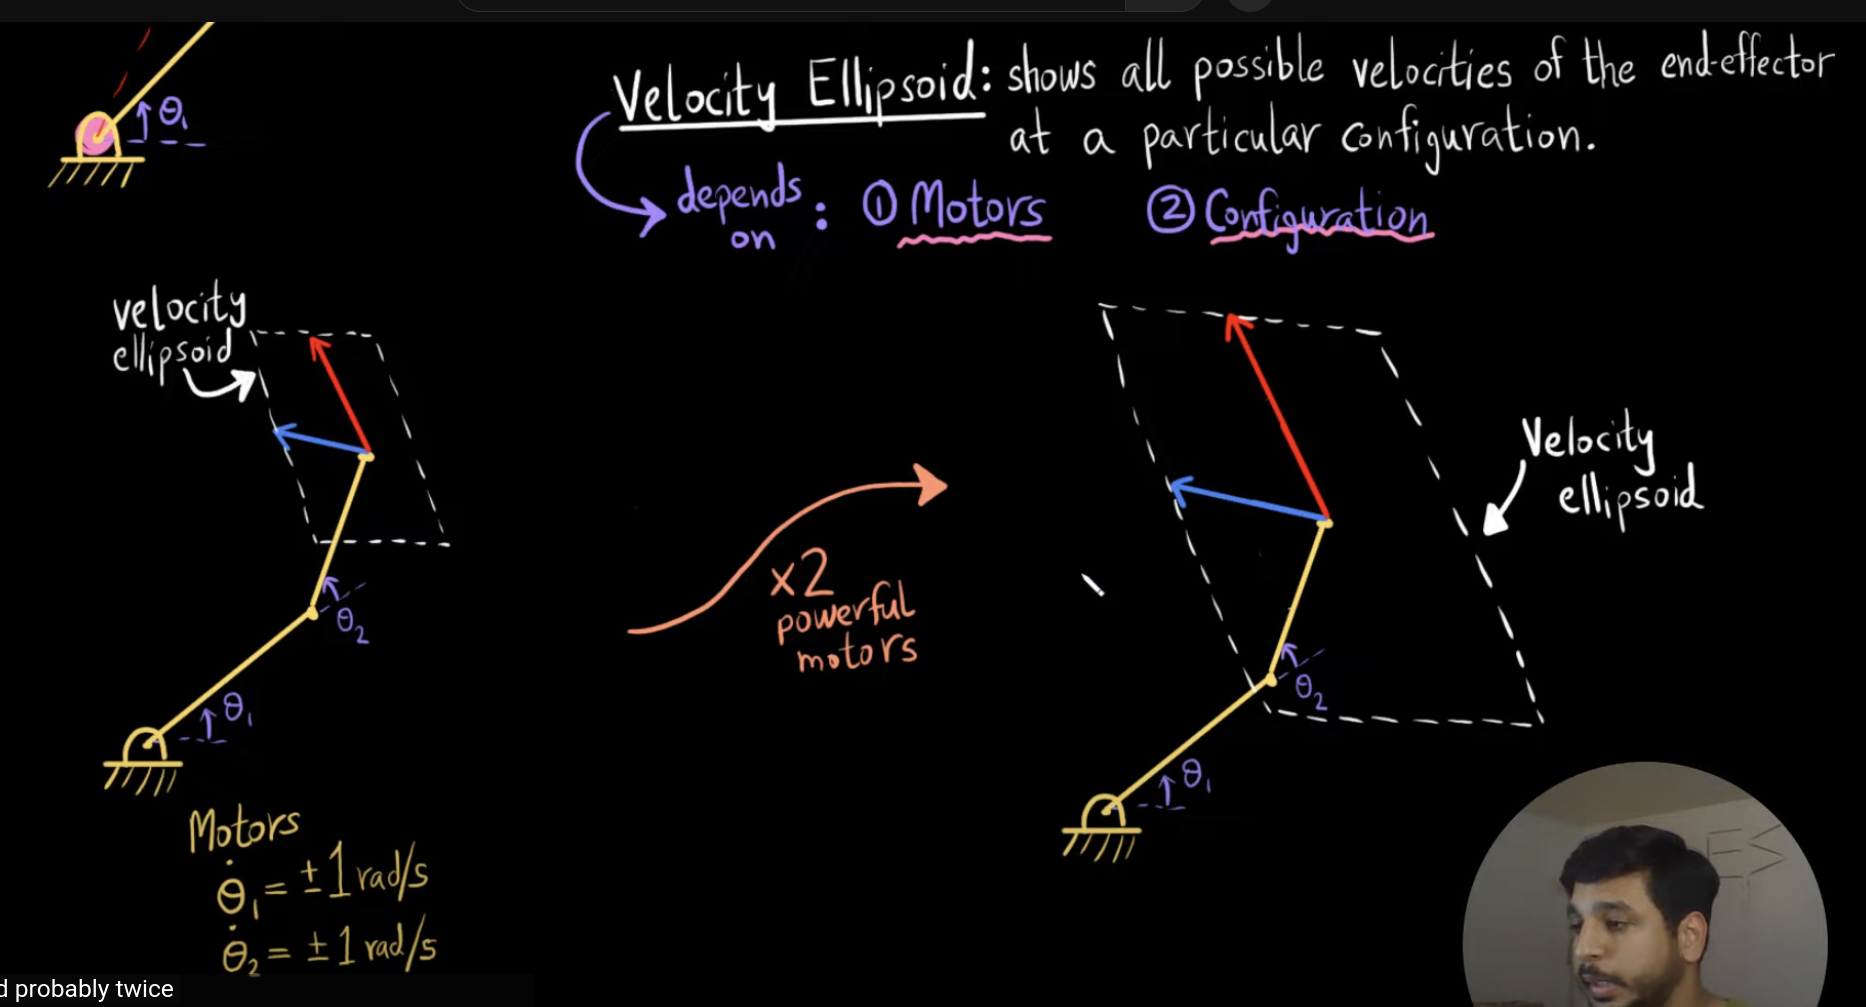 θ₁
Velocity Ellipsoid: shows all possible velocities of the end-effector
at a particular configuration.
depends on : ① Motors ② Configuration
velocity
ellipsoid
θ₂
θ₁
Motors
θ̇₁ = ±1 rad/s
θ̇₂ = ±1 rad/s
x2
powerful
motors
Velocity
ellipsoid
θ₂
θ₁
d probably twice